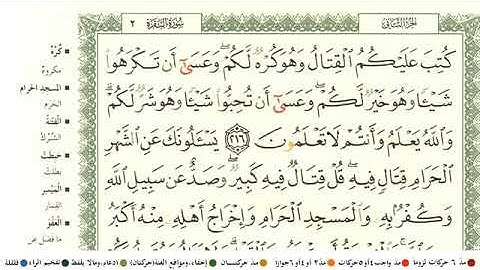 الجزء الثاني
سورة البقرة
٢
كُتِبَ عَلَيْكُمُ ٱلْقِتَالُ وَهُوَ كُرْهٌ لَّكُمْ ۖ وَعَسَىٰٓ أَن تَكْرَهُوا۟
شَيْـًٔا وَهُوَ خَيْرٌ لَّكُمْ ۖ وَعَسَىٰٓ أَن تُحِبُّوا۟ شَيْـًٔا وَهُوَ شَرٌّ لَّكُمْ ۗ
وَٱللَّهُ يَعْلَمُ وَأَنتُمْ لَا تَعْلَمُونَ ٢١٦ يَسْـَٔلُونَكَ عَنِ ٱلشَّهْرِ
ٱلْحَرَامِ قِتَالٍ فِيهِ ۖ قُلْ قِتَالٌ فِيهِ كَبِيرٌ ۖ وَصَدٌّ عَن سَبِيلِ ٱللَّهِ
وَكُفْرٌۢ بِهِۦ وَٱلْمَسْجِدِ ٱلْحَرَامِ وَإِخْرَاجُ أَهْلِهِۦ مِنْهُ أَكْبَرُ
كُرْهٌ
مكروه
المسجد الحرام
الحَرَم
الفتنة
الشِّرْكُ
حبطت
بطلت
الميسر
القمار
العفو
ما فضل عن
مد ٦ حركات لزوما
مد واجب ٤ أو ٥ حركات
مد ٢ أو ٤ أو ٦ جوازا
مد حركتان
إخفاء، ومواقع الغنة (حركتان)
إدغام، وما لا يلفظ
تفخيم الراء
قلقلة